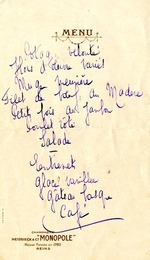 MENU
Potage velouté
Hors d'œuvre variés
meunière
Filet de bœuf au Madère
Petit pois au jambon
Poulet rôti
Salade
Entremet
Glace vanillée
Gâteau
Café
CHAMPAGNE
HEIDSIECK & Cº "MONOPOLE"
MAISON FONDÉE EN 1785
REIMS